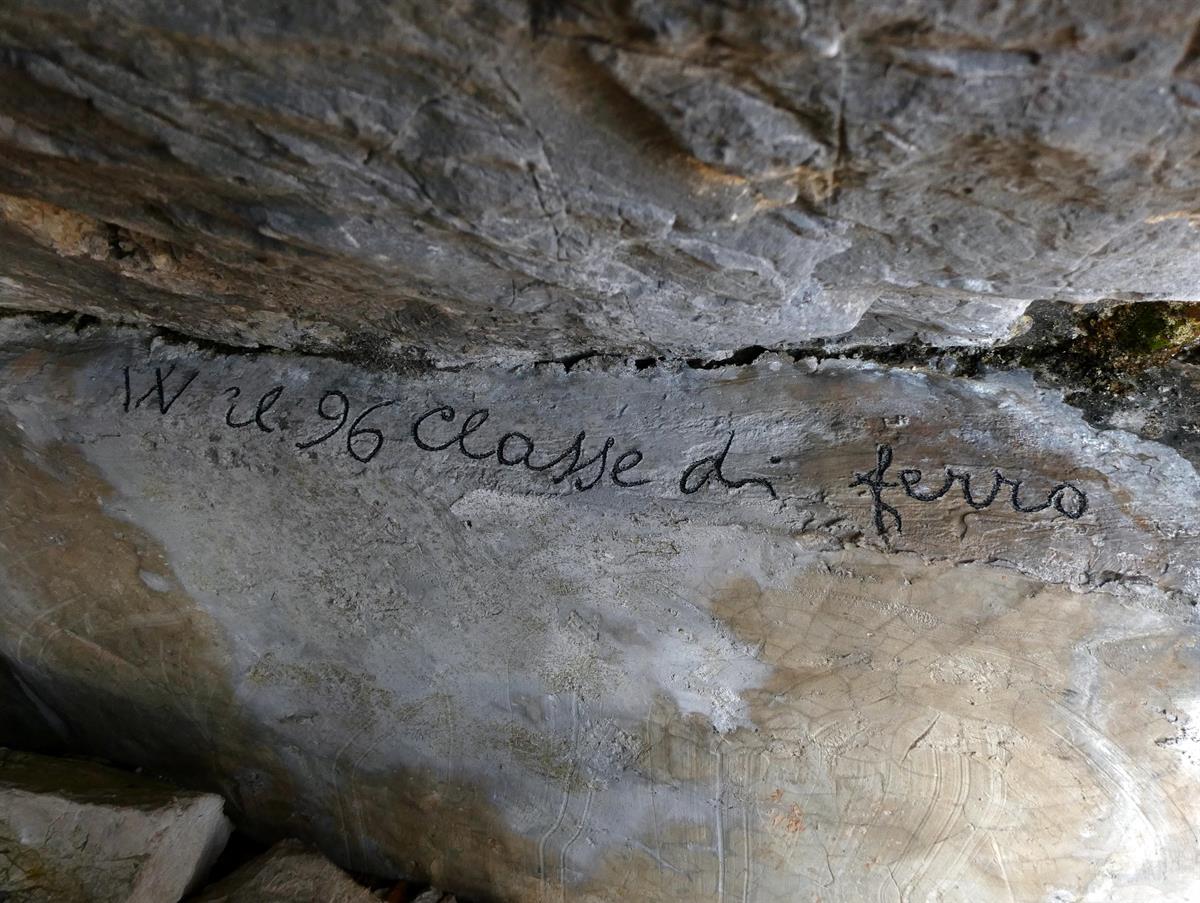 W il 96 Classe di ferro